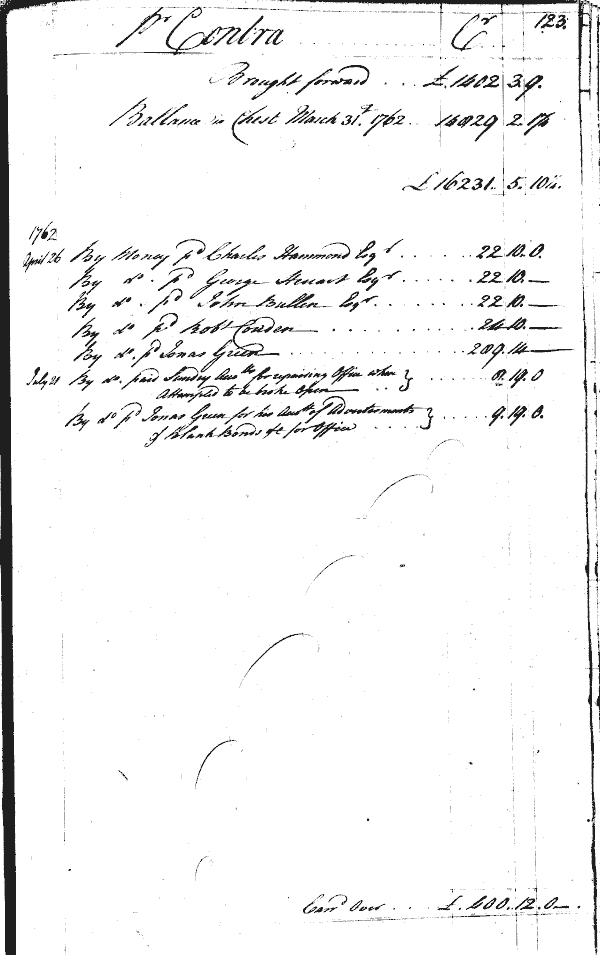 pr Contra Cr 123.
Brought forward ... £.1402 3 9.
Ballance in Chest March 31st. 1762.. 14829 2. 1½
£16231. 5. 10½.
1762
April 26 By Money pd Charles Hammond Esqr ...... 22.10.0.
By do. pd George Steuart Esqr ...... 22.10.—
By do. pd John Bullen Esqr ...... 22.10.—
By do pd Robt Couden ......... 24.10.—
By do. pd Jonas Green ......... 289.14—
July 21 By do. paid Sundry Accts for repairing Office when } .... 8.19.0
Attempted to be broke Open
By do pd Jonas Green for his Acct of Advertisements } ..... 9.19.0.
of Blank Bonds &c for Office ....
Carrd Over ... £.400.12.0—.